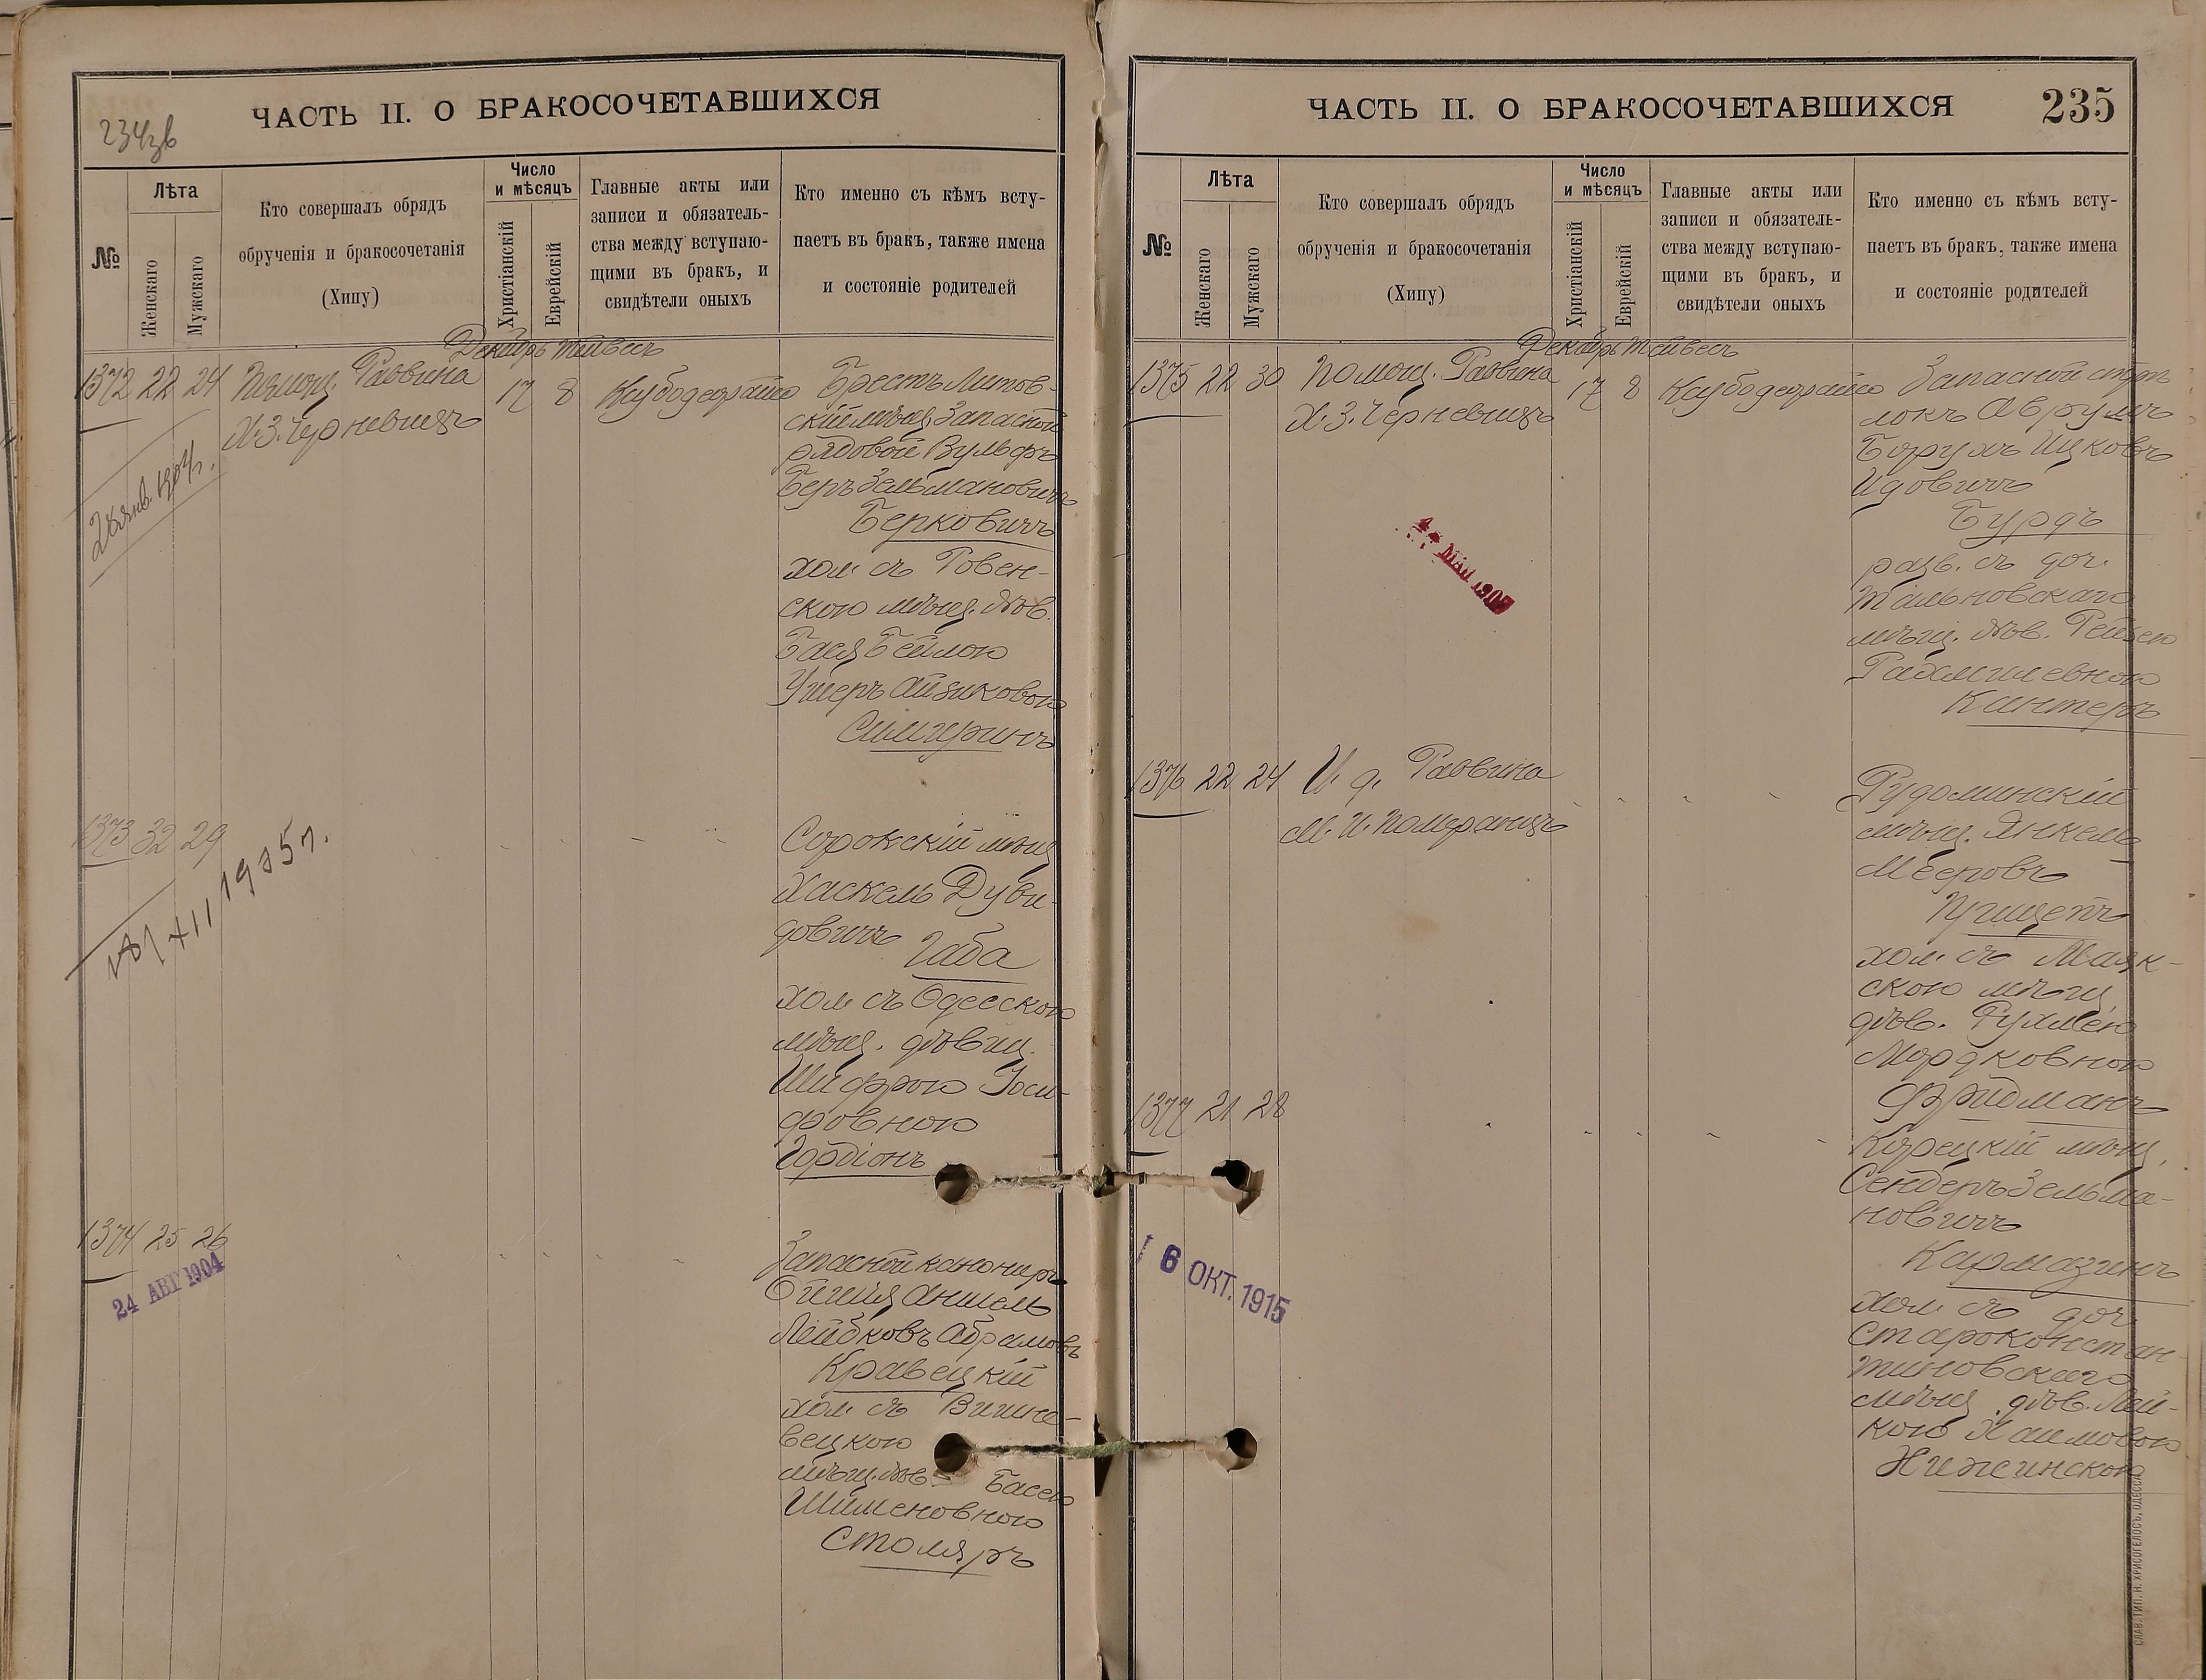 234зв
ЧАСТЬ II. О БРАКОСОЧЕТАВШИХСЯ
№
Лѣта
Женскаго
Мужскаго
Кто совершалъ обрядъ
обрученія и бракосочетанія
(Хипу)
Число
и мѣсяцъ
Христіанскій
Еврейскій
Главные акты или
записи и обязатель-
ства между вступаю-
щими въ бракъ, и
свидѣтели оныхъ
Кто именно съ кѣмъ всту-
паетъ въ бракъ, также имена
и состояніе родителей
Декабрь Тейвесъ
1372 22 24 Помощ. Раввина 17 8
Х.З. Черневицъ
28 янв. 1904 г.
Брестъ Литов-
скій мѣщ. Запасной
рядовой Вульфъ
Беръ Зельмановичъ
Берковичъ
хол. съ Ровен-
скою мѣщ. дѣв.
Бася Бейлою
Ушеръ Айзиковою
1373 32 29
XII 1905 г.
Сорокскій мѣщ
Хаскель Дуви-
довичъ Габа
хол. съ Одесскою
мѣщ. дѣвиц.
Шифрою Іоси-
фовною
Гордіонъ
1374 25 26
24 АВГ 1904
Запасной канониръ
Аншель
Лейбковъ Абрамовъ
Кравецкій
хол. съ Вишне-
вецкою
мѣщ. дѣв. Басею
Шименовною
Столяръ
ЧАСТЬ II. О БРАКОСОЧЕТАВШИХСЯ
235
№
Лѣта
Женскаго
Мужскаго
Кто совершалъ обрядъ
обрученія и бракосочетанія
(Хипу)
Число
и мѣсяцъ
Христіанскій
Еврейскій
Главные акты или
записи и обязатель-
ства между вступаю-
щими въ бракъ, и
свидѣтели оныхъ
Кто именно съ кѣмъ всту-
паетъ въ бракъ, также имена
и состояніе родителей
Декабрь Тейвесъ
1375 22 30 Помощ. Раввина 17 8
Х.З. Черневицъ
МАЙ 1907
Запасной стрѣ
локъ Аврумъ
Борухъ Ицковъ
Идовичъ
Бурдъ
разв. съ доч.
Тальновскаго
мѣщ. дѣв. Рейзею
Рахмилевною
Кантеръ
1376 22 24 И. д. Раввина
М. И. Померанцъ
Рудоминскій
мѣщ. Янкель
Мееровъ
хол. съ Маяк-
скою мѣщ.
дѣв. Рухлею
Мордковною
Фридманъ
1377 21 28
6 ОКТ. 1915
Корецкій мѣщ.
Сендеръ Зельма-
новичъ
Кармазинъ
хол. съ доч.
Староконстан-
тиновскаго
мѣщ. дѣв. Лей-
кою Хаимовою
Нижинскою
СЛАВ. ТИП. Н. ХРИСОГЕЛОСЪ, ОДЕССА